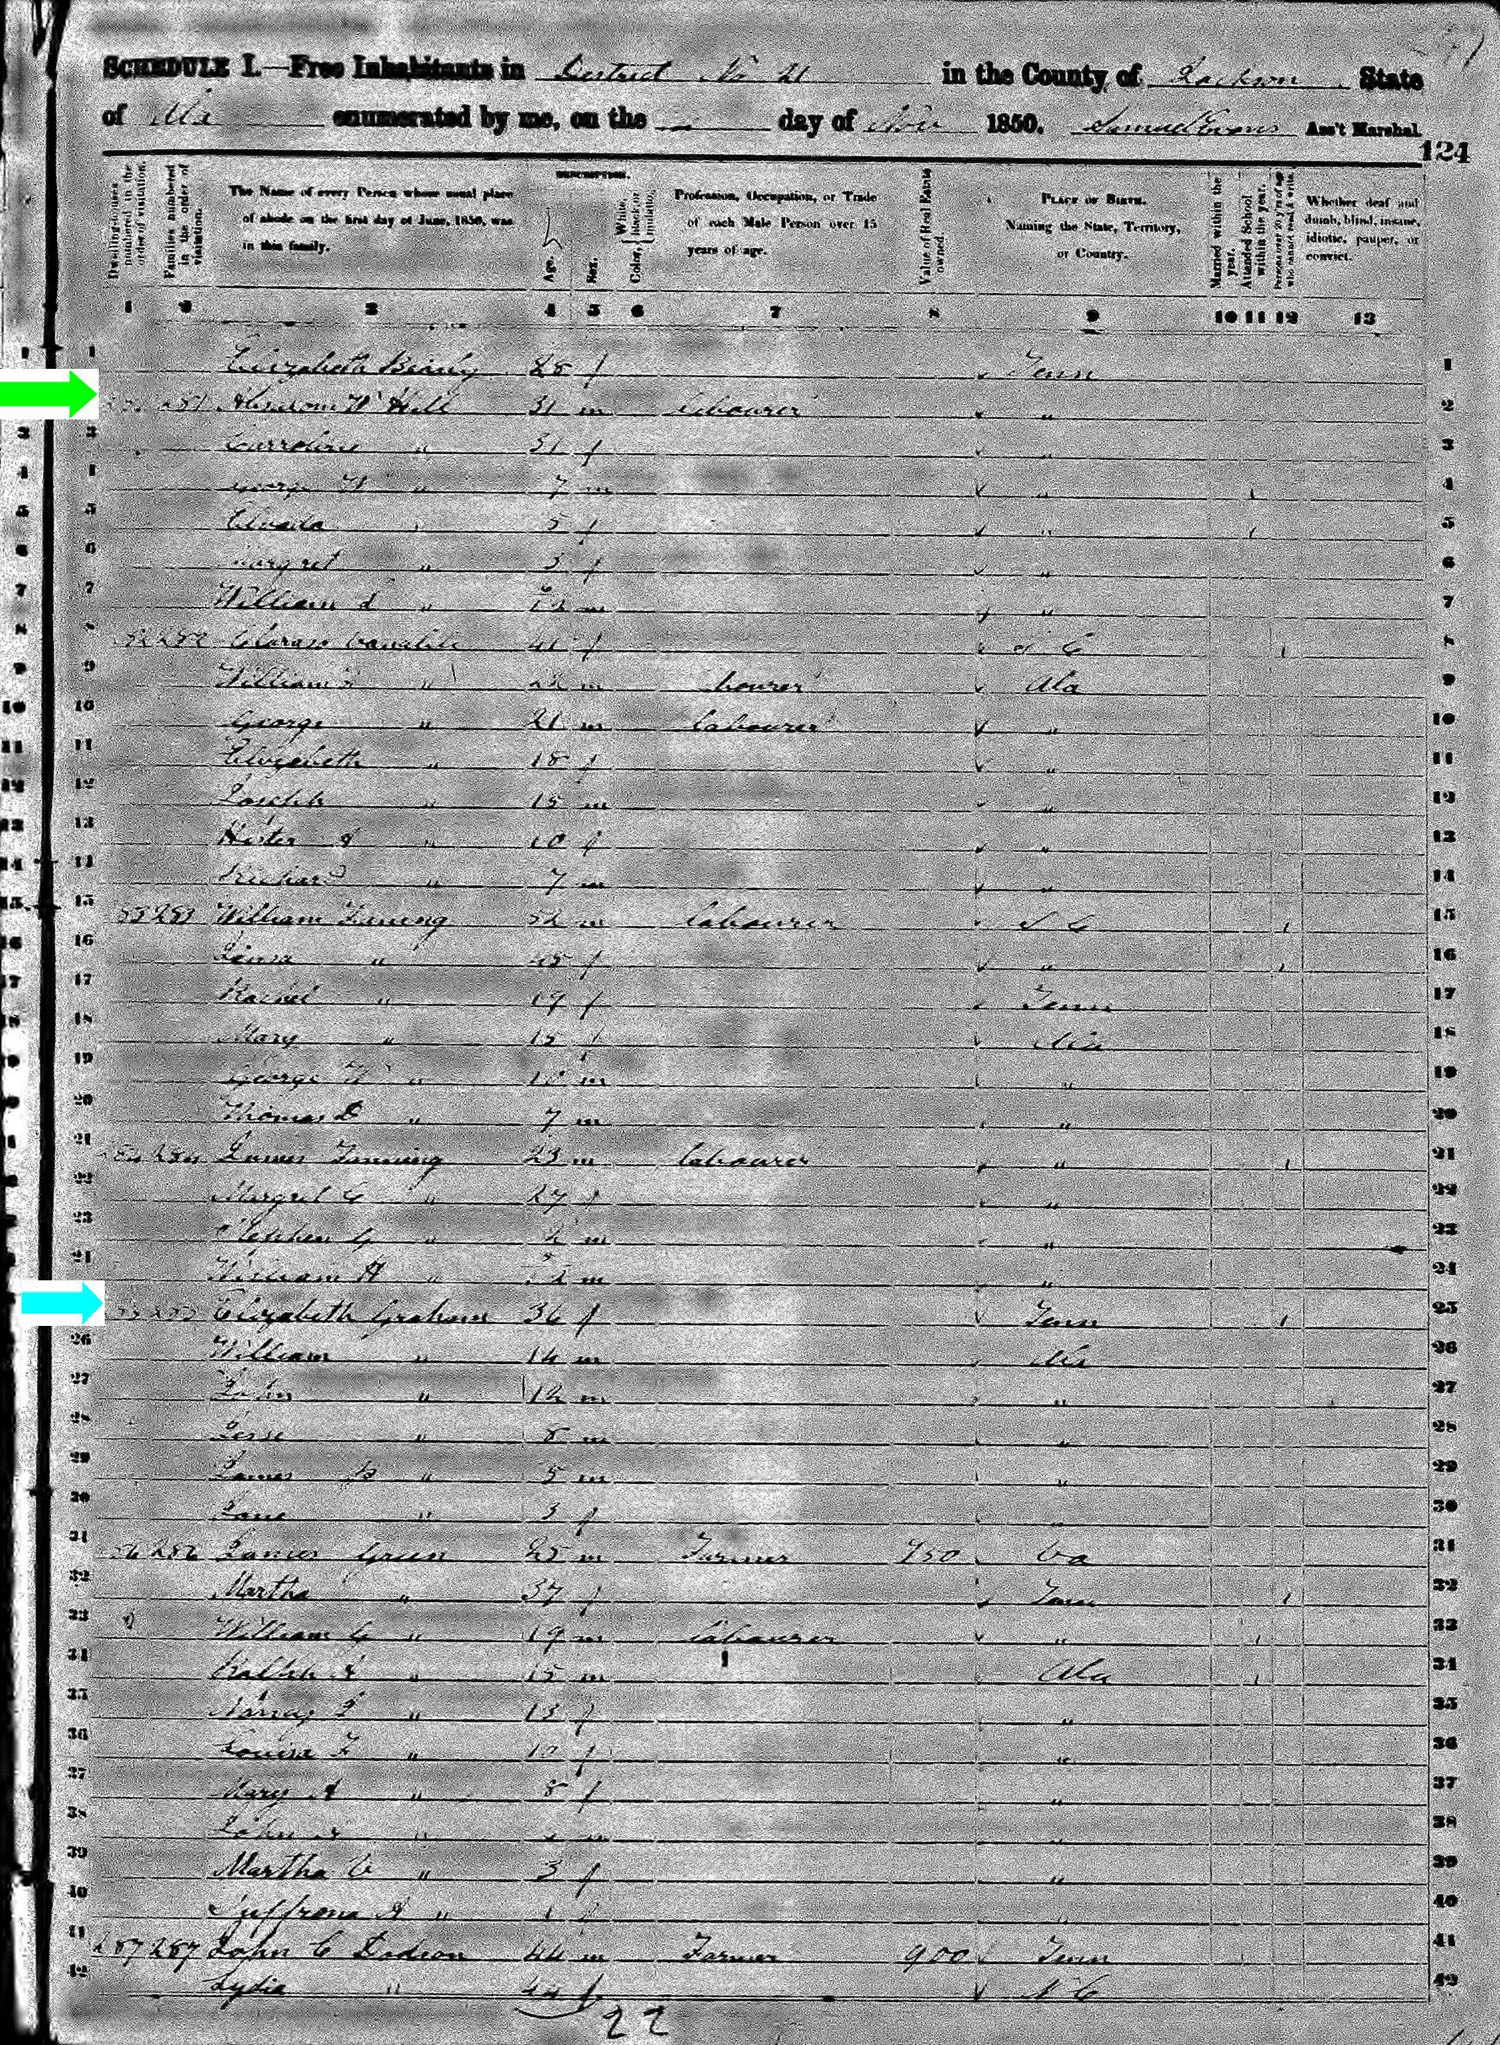 SCHEDULE I.—Free Inhabitants in District No 21 in the County of Jackson State
of Ala enumerated by me, on the day of Nov 1850. Samuel Evans Ass't Marshal.
124
Dwelling-houses numbered in the order of visitation.
Families numbered in the order of visitation.
The Name of every Person whose usual place of abode on the first day of June, 1850, was in this family.
DESCRIPTION.
Age.
Sex.
Color, White, black, or mulatto.
Profession, Occupation, or Trade of each Male Person over 15 years of age.
Value of Real Estate owned.
PLACE OF BIRTH. Naming the State, Territory, or Country.
Married within the year.
Attended School within the year.
Persons over 20 y'rs of age who cannot read & write.
Whether deaf and dumb, blind, insane, idiotic, pauper, or convict.
1 2 3 4 5 6 7 8 9 10 11 12 13
1 Elizabeth 28 f Tenn 1
2 281 W Hill 31 m labourer " 2
3 Carroline " 31 f " 3
4 George W " 7 m " 4
5 " 5 f " 5
6 Margret " 3 f " 6
7 William L " m " 7
8 282 41 f C 8
9 William " 22 m Ala 9
10 George " 21 m labourer " 10
11 Elizabeth " 18 f " 11
12 Joseph " 15 m " 12
13 Hester A " 10 f " 13
14 Richard " 7 m " 14
15 283 William 52 m labourer S C 15
16 " 45 f " 16
17 Rachel " 19 f Tenn 17
18 Mary " 15 f Ala 18
19 George W " m " 19
20 Thomas D " 7 m " 20
21 284 James Fanning 23 m labourer " 21
22 Margret C " 27 f " 22
23 Stephen G " 2 m " 23
24 William H " m " 24
25 Elizabeth Graham 36 f Tenn 25
26 William " 14 m Ala 26
27 John " 12 m " 27
28 Jesse " 8 m " 28
29 James B " 5 m " 29
30 Jane " 3 f " 30
31 286 James Green 25 m Farmer 750 Va 31
32 Martha " 37 f Tenn 32
33 William C " 19 m labourer " 33
34 Ralph A " 15 m Ala 34
35 Nancy J " 13 f " 35
36 Louisa F " 10 f " 36
37 Mary A " 8 f " 37
38 John A " m " 38
39 Martha V " 3 f " 39
40 A " 1 f " 40
41 287 287 John C Dodson 44 m Farmer 900 Tenn 41
42 Lydia " 44 f N C 42
22